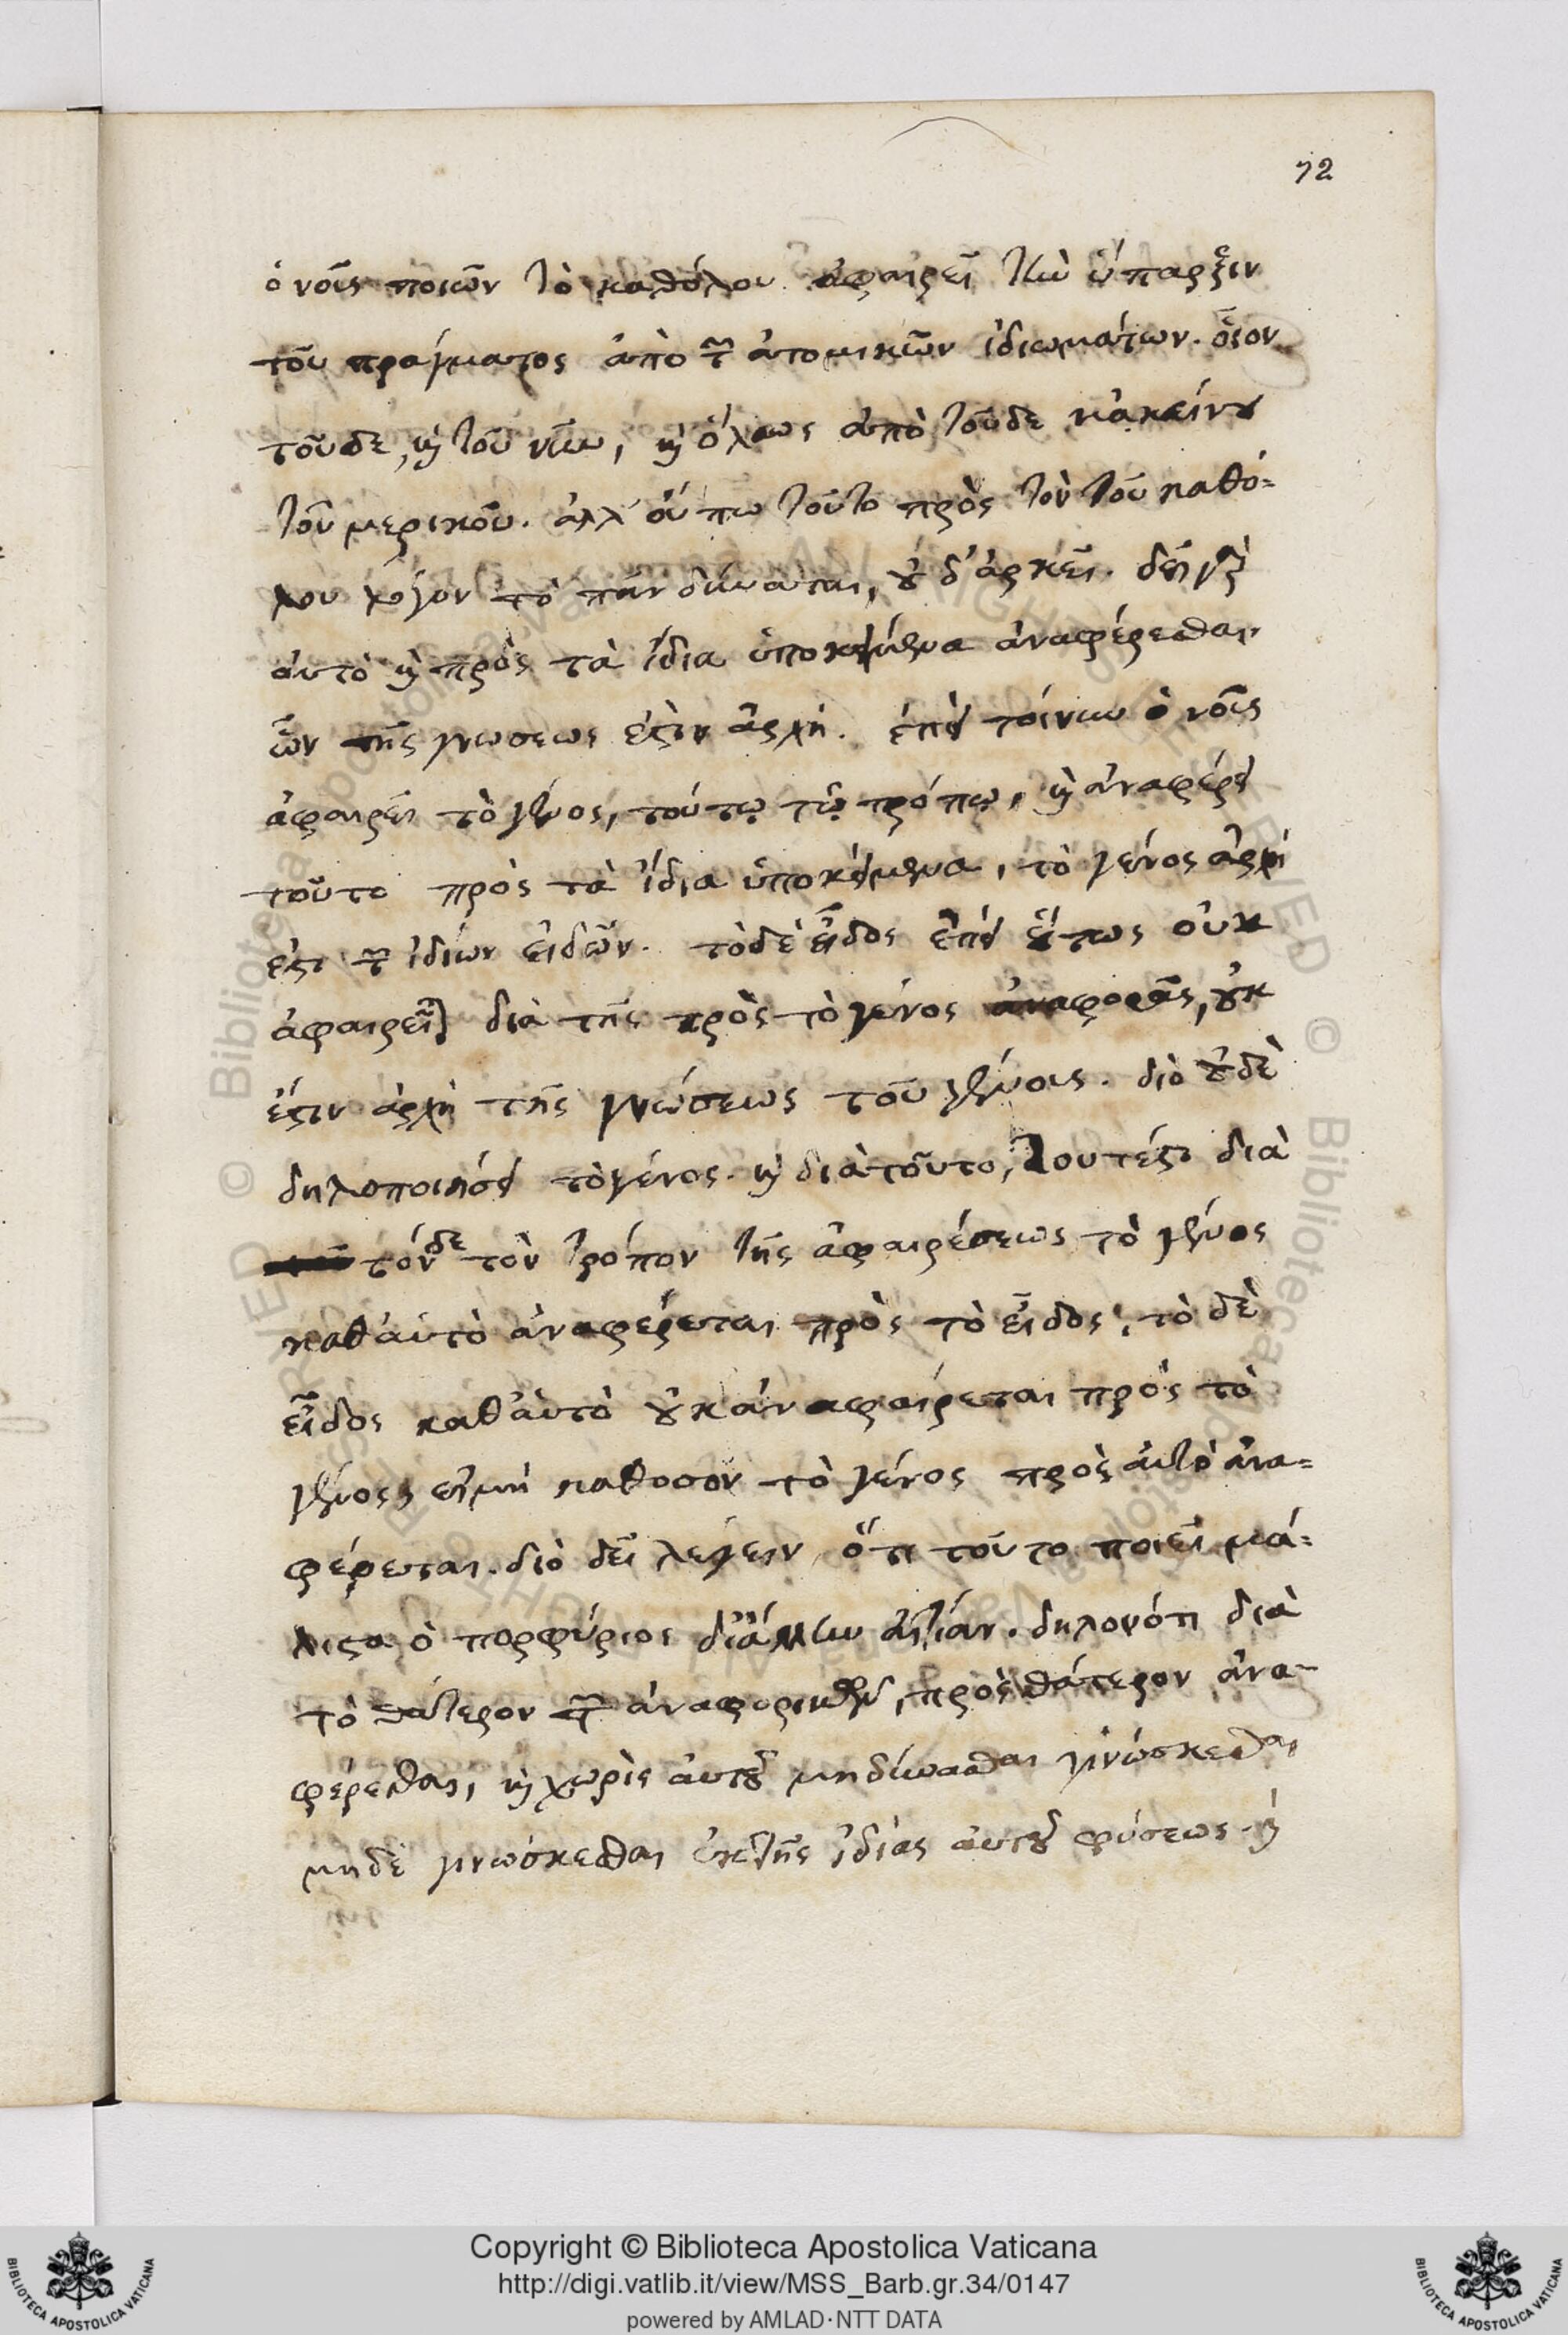 72
ὁ νοῦς ποιῶν τὸ καθόλου ἀφαιρεῖ τὴν ὕπαρξιν
τοῦ πράγματος ἀπὸ τῶν ἀτομικῶν ἰδιωμάτων. οἷον
τοῦδε, καὶ τοῦ νῦν, καὶ ὅλως ἀπὸ τοῦδε κἀκείνου
τοῦ μερικοῦ. ἀλλ' οὔπω τοῦτο πρὸς τὸν τοῦ καθό=
λου λόγον τὸ πᾶν δύναται, οὐδ' ἀρκεῖ. δεῖ γὰρ
αὐτὸ καὶ πρὸς τὰ ἴδια ὑποκείμενα ἀναφέρεσθαι
ὧν τῆς γνώσεως ἐστὶν ἀρχή. ἐπεὶ τοίνυν ὁ νοῦς
ἀφαιρεῖ τὸ γένος, τούτῳ τῷ τρόπῳ, καὶ ἀναφέρει
τοῦτο πρὸς τὰ ἴδια ὑποκείμενα, τὸ γένος ἀρχή
ἐστι τῶν ἰδίων εἰδῶν. τὸ δὲ εἶδος ἐπεὶ οὕτως οὐκ
ἀφαιρεῖται διὰ τῆς πρὸς τὸ γένος ἀναφορᾶς, οὐκ
ἔστιν ἀρχὴ τῆς γνώσεως τοῦ γένους. διὸ οὐδὲ
δηλοποιήσει τὸ γένος. καὶ διὰ τοῦτο, τουτέστι διὰ
τόνδε τὸν τρόπον τῆς ἀφαιρέσεως τὸ γένος
καθ' αὑτὸ ἀναφέρεται πρὸς τὸ εἶδος, τὸ δὲ
εἶδος καθ' αὑτὸ οὐκ ἀναφαίρεται πρὸς τὸ
γένος, εἰμὴ καθοσον τὸ γένος πρὸς αὐτὸ ἀνα=
φέρεται. διὸ δεῖ λέγειν ὅτι τοῦτο ποιεῖ μά=
λιστα ὁ πορφύριος δι' ἄλλην αἰτίαν. δηλονότι διὰ
τὸ θάτερον τῶν ἀναφορικῶν, πρὸς θάτερον ἀνα-
φέρεσθαι, καὶ χωρὶς αὐτοῦ μη δύνασθαι γινώσκεσθαι
μηδὲ γινώσκεσθαι ἐκ τῆς ἰδίας αὐτοῦ φύσεως. καὶ
Copyright © Biblioteca Apostolica Vaticana
http://digi.vatlib.it/view/MSS_Barb.gr.34/0147
powered by AMLAD·NTT DATA